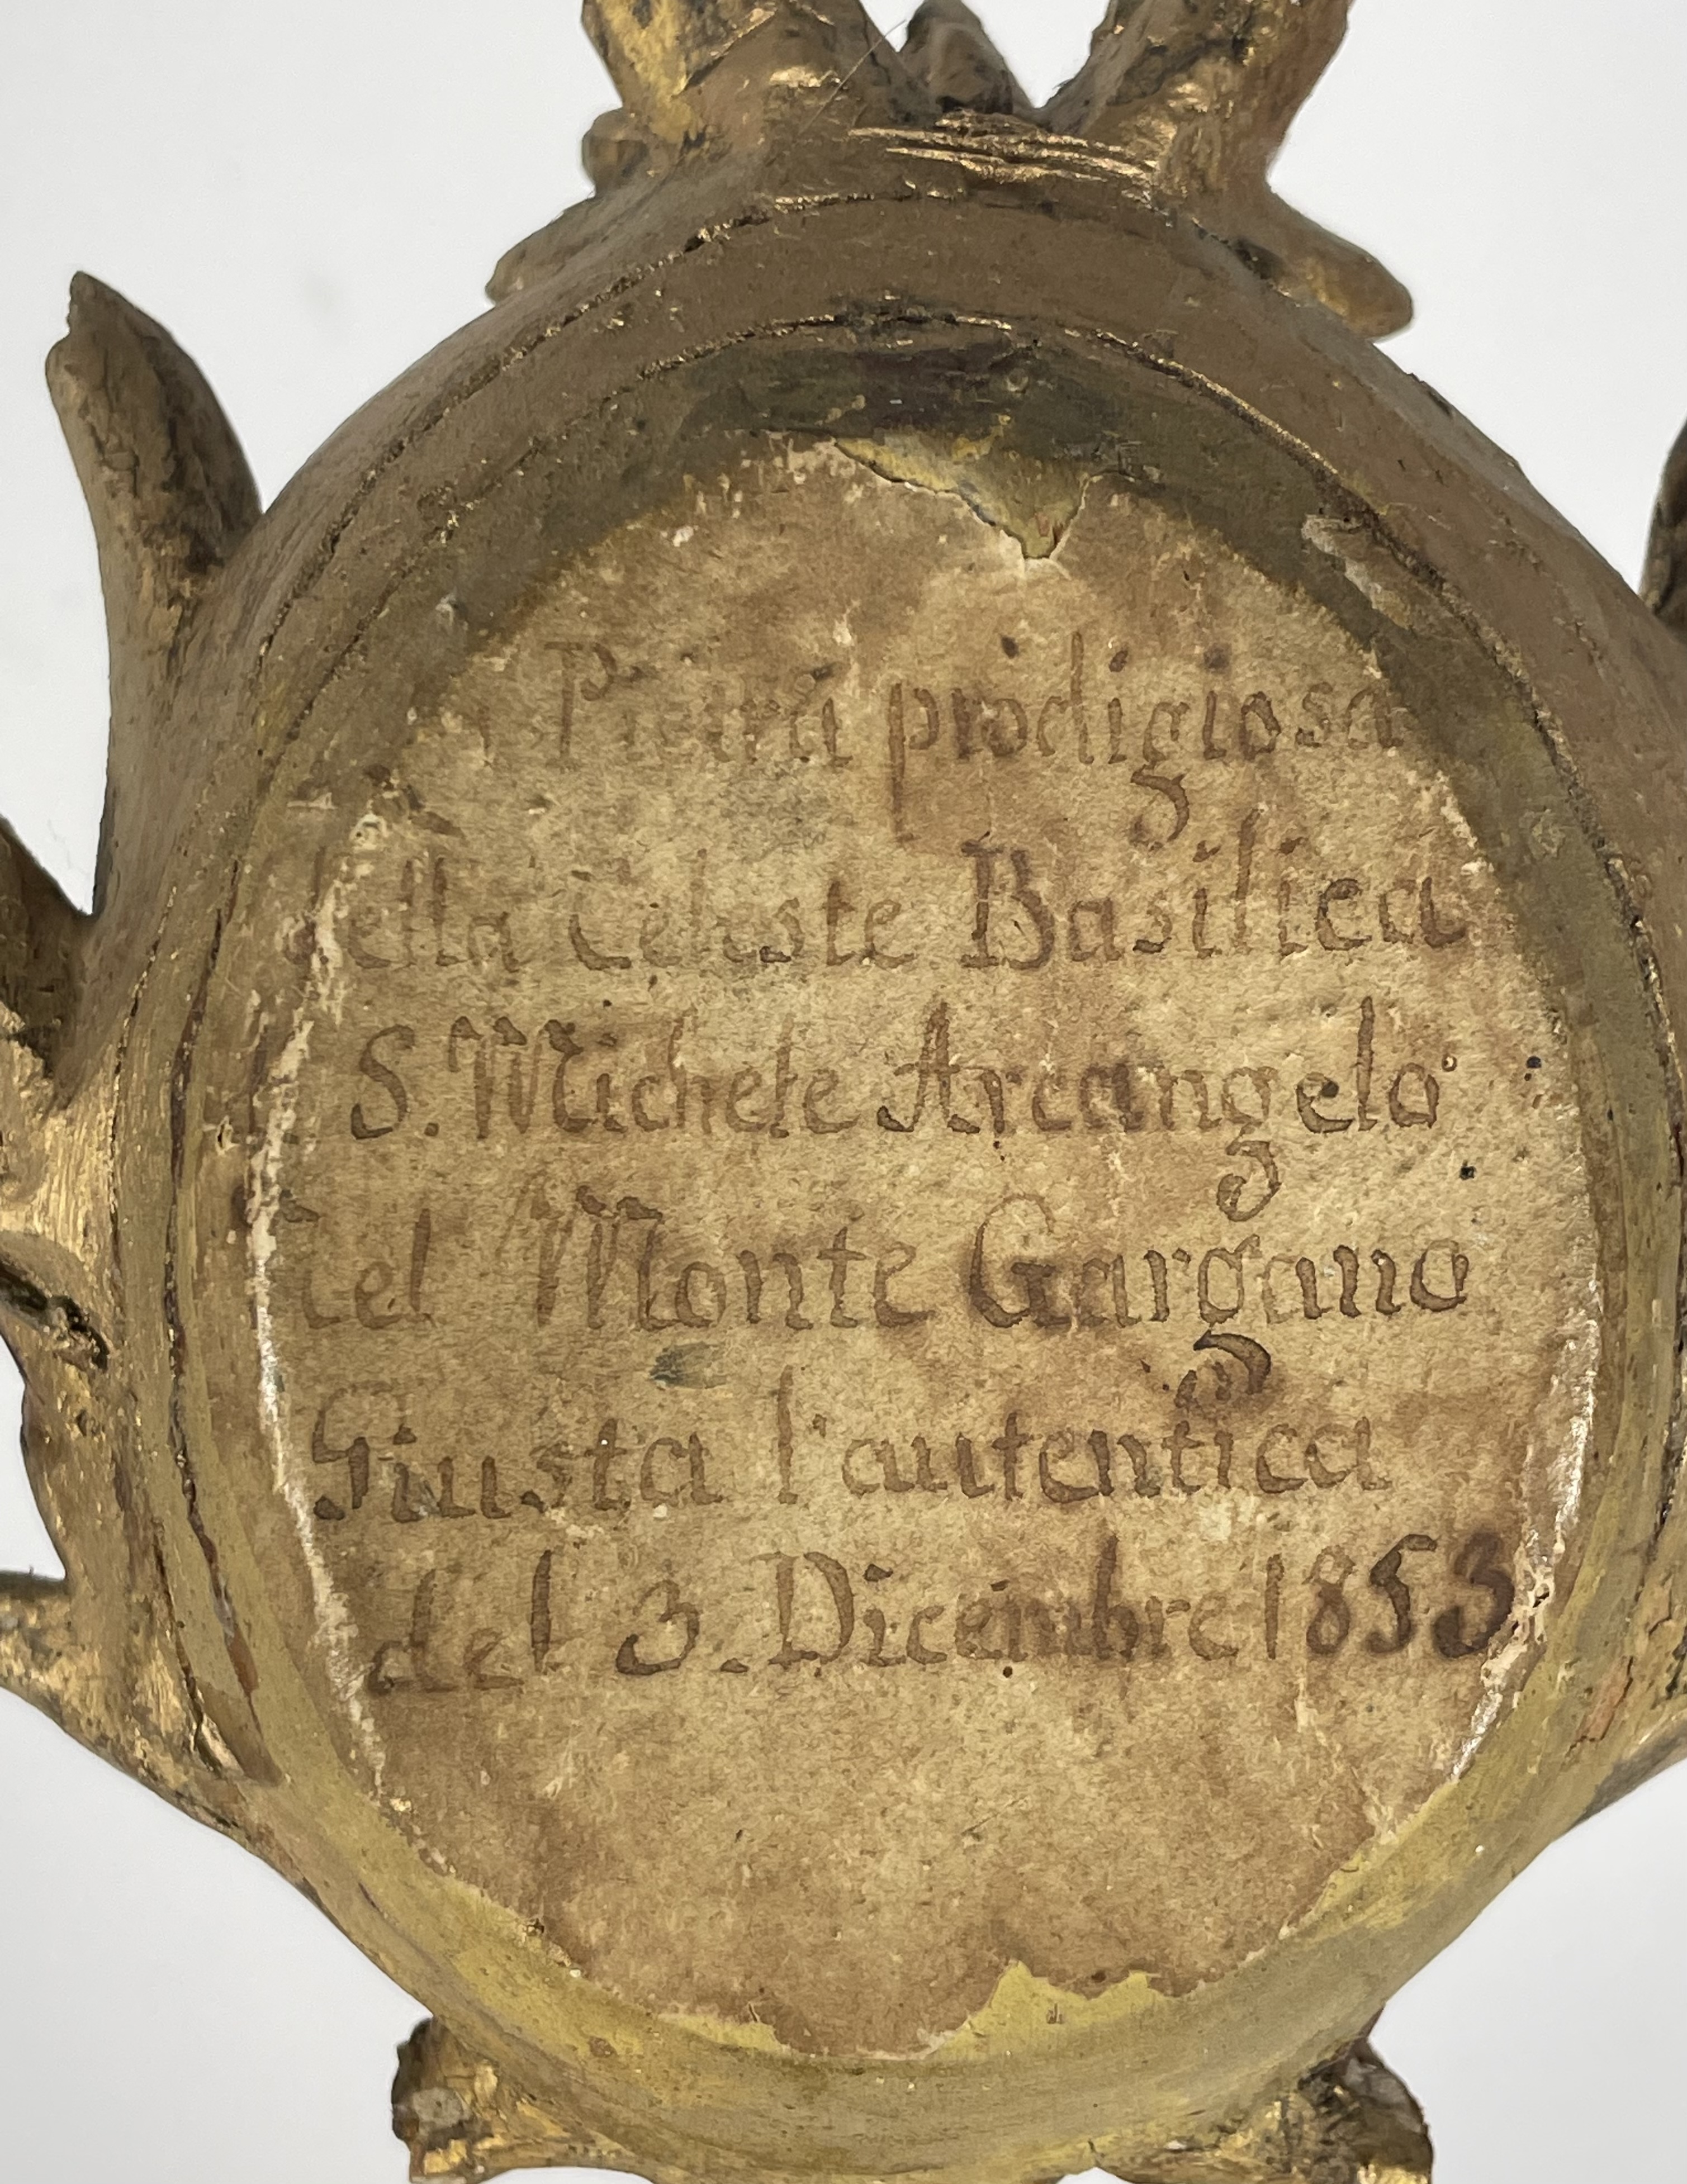 Pietra prodigiosa
della Celeste Basilica
S. Michele Arcangelo
del Monte Gargano
Giusta l'autentica
del 3. Dicembre 1853